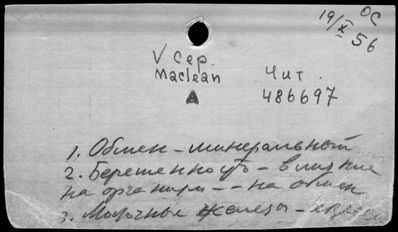 ОС
19/X 56
V Сер.
Maclean
А
Чит.
486697
1. Обмен – минеральный
2. Беременность – влияние
на организм – – на обмен
3. Молочные железы –